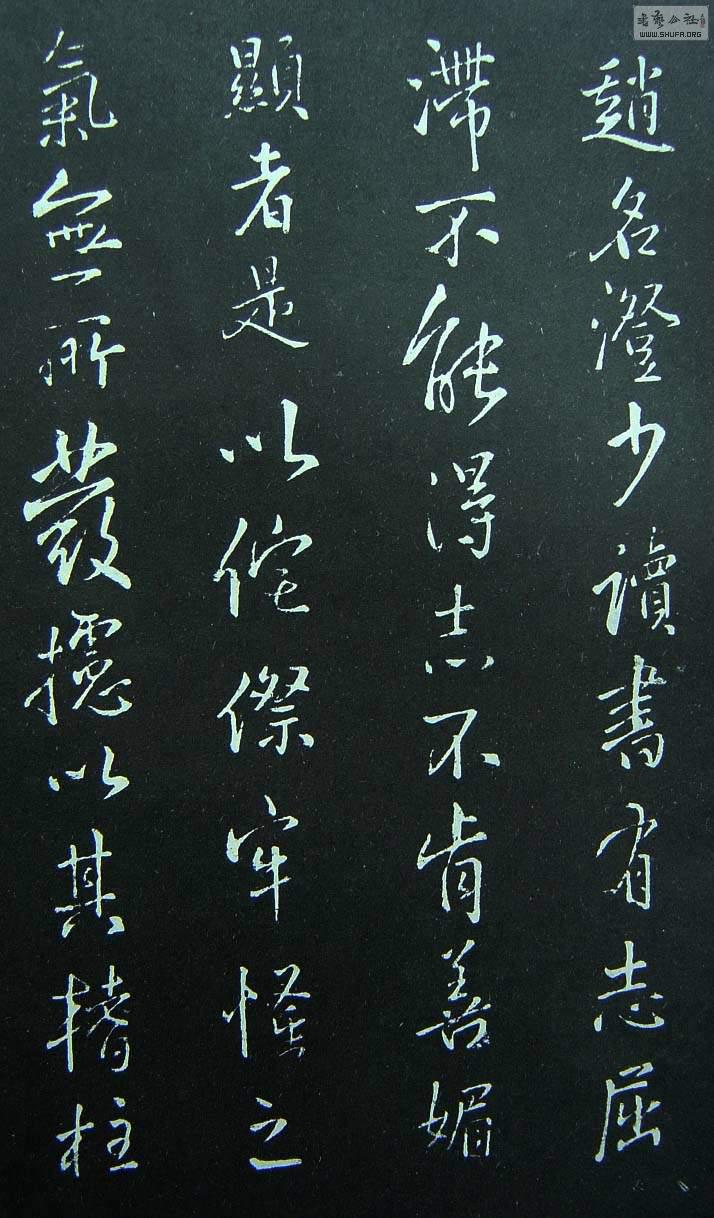 書藝公社
WWW.SHUFA.ORG
趙名澄少讀書有志屈
滯不能得志不肯善媚
顯者是以侘傺牢慅之
氣無所發攄以其榰柱